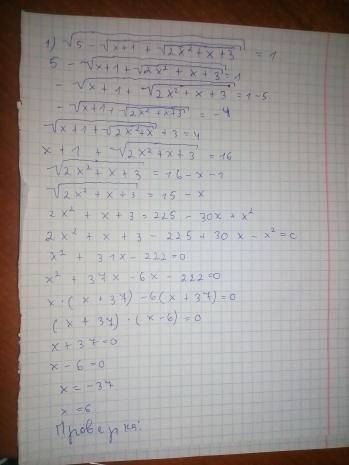 1) √(5 - √(x+1 + √(2x² + x + 3))) = 1
5 - √(x+1 + √(2x² + x + 3)) = 1
- √(x + 1 + √(2x² + x + 3)) = 1-5
- √(x+1 + √(2x² + x+3)) = -4
√(x + 1 + √(2x² + x) + 3 = 4
x + 1 + √(2x² + x + 3) = 16
√(2x² + x + 3) = 16 - x - 1
√(2x² + x + 3) = 15 - x
2x² + x + 3 = 225 - 30x + x²
2x² + x + 3 - 225 + 30x - x² = 0
x² + 31x - 222 = 0
x² + 37x - 6x - 222 = 0
x · (x + 37) - 6(x + 37) = 0
(x + 37) · (x - 6) = 0
x + 37 = 0
x - 6 = 0
x = -37
x = 6
Проверка: